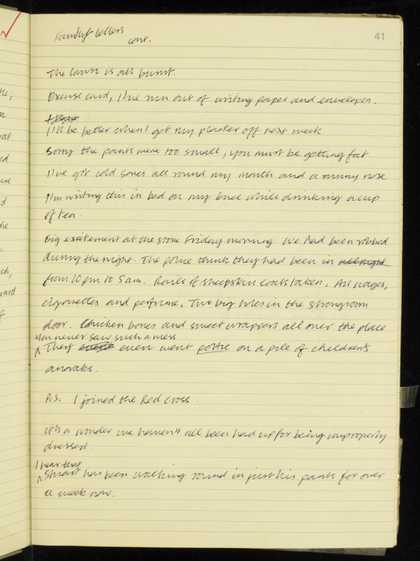 Family letters
cont.
41
The lawn is all burnt.
Excuse card, I've run out of writing paper and envelopes.
I'll be better when I get my plaster off next week
Sorry the pants were too small, you must be getting fat
I've got cold sores all round my mouth and a runny nose
I'm writing this in bed on my knee while drinking a cup
of tea.
Big excitement at the store Friday morning. We had been robbed
during the night. The police think they had been in all night
from 10pm to 5am. Rails of sheepskin coats taken. All wages,
cigarettes and perfume. Two big holes in the strongroom
door. Chicken bones and sweet wrappers all over the place
You never saw such a mess
They even went on a pile of children's
anoraks.
P.S. I joined the Red Cross
It's a wonder we haven't all been had up for being improperly
dressed
I hear that
Stuart has been walking round in just his pants for over
a week now.